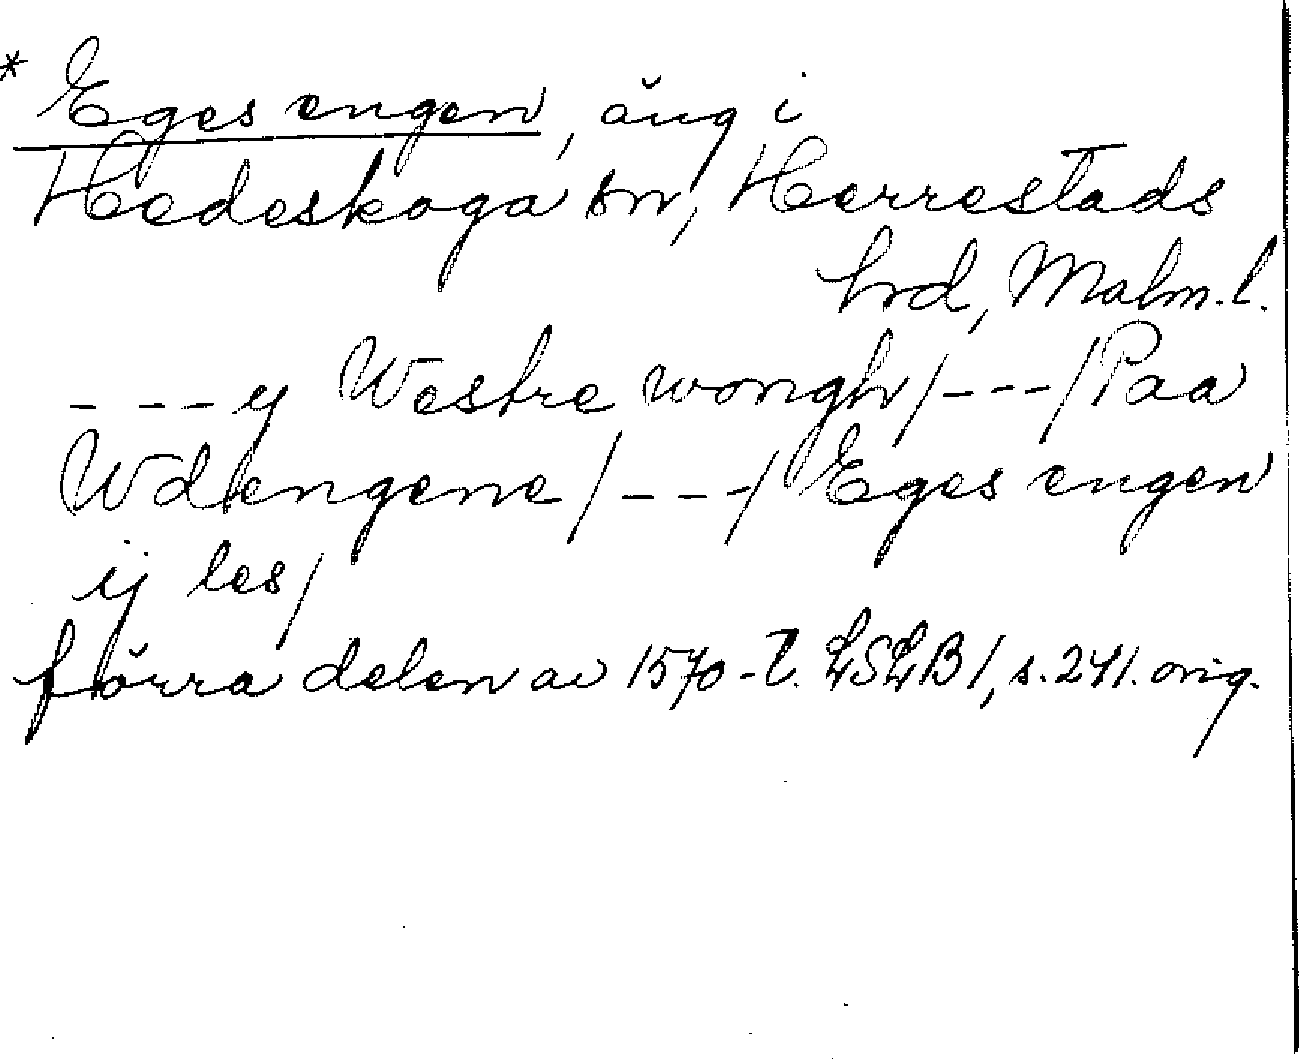 * Eges engen, äng i
Hedeskoga sn, Herrestads
hrd, Malm. l.
- --- y Westre wongh/---/Paa
Wdengene/---/Eges engen
ij les/
förra delen av 1570-t. LSLB 1, s. 241. orig.